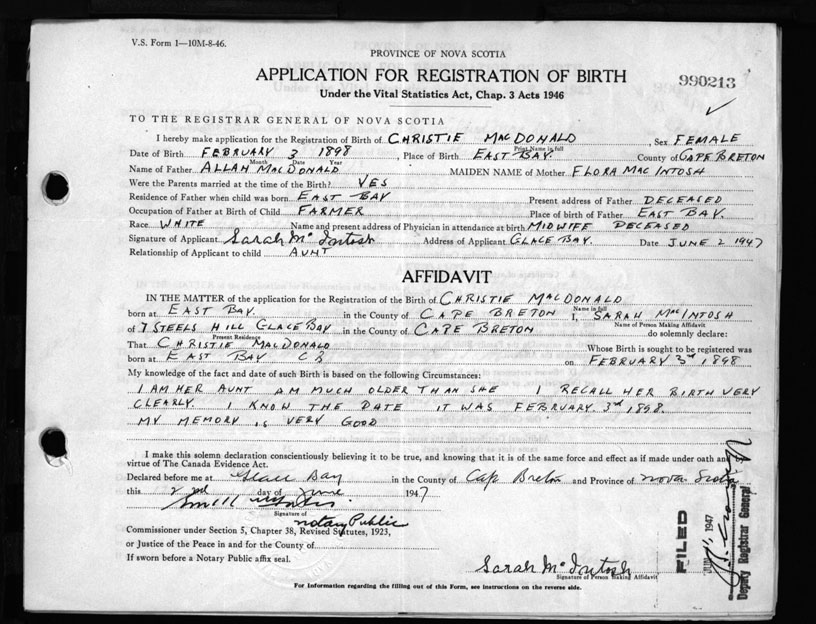 V.S. Form 1—10M-8-46.
PROVINCE OF NOVA SCOTIA
APPLICATION FOR REGISTRATION OF BIRTH
990213
Under the Vital Statistics Act, Chap. 3 Acts 1946
TO THE REGISTRAR GENERAL OF NOVA SCOTIA
I hereby make application for the Registration of Birth of CHRISTIE MACDONALD, Sex FEMALE
Print Name in full
Date of Birth FEBRUARY 3 1898, Place of Birth EAST BAY. County of CAPE BRETON
Month Date Year
Name of Father ALLAN MACDONALD MAIDEN NAME of Mother FLORA MACINTOSH
Were the Parents married at the time of the Birth? YES
Residence of Father when child was born EAST BAY Present address of Father DECEASED
Occupation of Father at Birth of Child FARMER Place of birth of Father EAST BAY.
Race WHITE Name and present address of Physician in attendance at birth MIDWIFE DECEASED
Signature of Applicant Sarah McIntosh Address of Applicant GLACE BAY. Date JUNE 2 1947
Relationship of Applicant to child AUNT
AFFIDAVIT
IN THE MATTER of the application for the Registration of the Birth of CHRISTIE MACDONALD
Name in full
born at EAST BAY. in the County of CAPE BRETON I, SARAH MACINTOSH
Name of Person Making Affidavit
of 7 STEELS HILL GLACE BAY in the County of CAPE BRETON do solemnly declare:
Present Residence
That CHRISTIE MACDONALD Whose Birth is sought to be registered was
born at EAST BAY CB on FEBRUARY 3rd 1898
My knowledge of the fact and date of such Birth is based on the following Circumstances:
I AM HER AUNT AM MUCH OLDER THAN SHE I RECALL HER BIRTH VERY
CLEARLY. I KNOW THE DATE IT WAS FEBRUARY. 3rd 1898.
MY MEMORY IS VERY GOOD
I make this solemn declaration conscientiously believing it to be true, and knowing that it is of the same force and effect as if made under oath and
virtue of The Canada Evidence Act.
Declared before me at Glace Bay in the County of Cape Breton and Province of Nova Scotia
this 2nd day of June 1947
Signature of
Notary Public
Commissioner under Section 5, Chapter 38, Revised Statutes, 1923,
or Justice of the Peace in and for the County of
If sworn before a Notary Public affix seal.
Sarah McIntosh
Signature of Person Making Affidavit
For Information regarding the filling out of this Form, see instructions on the reverse side.
FILED
1947
Deputy Registrar General